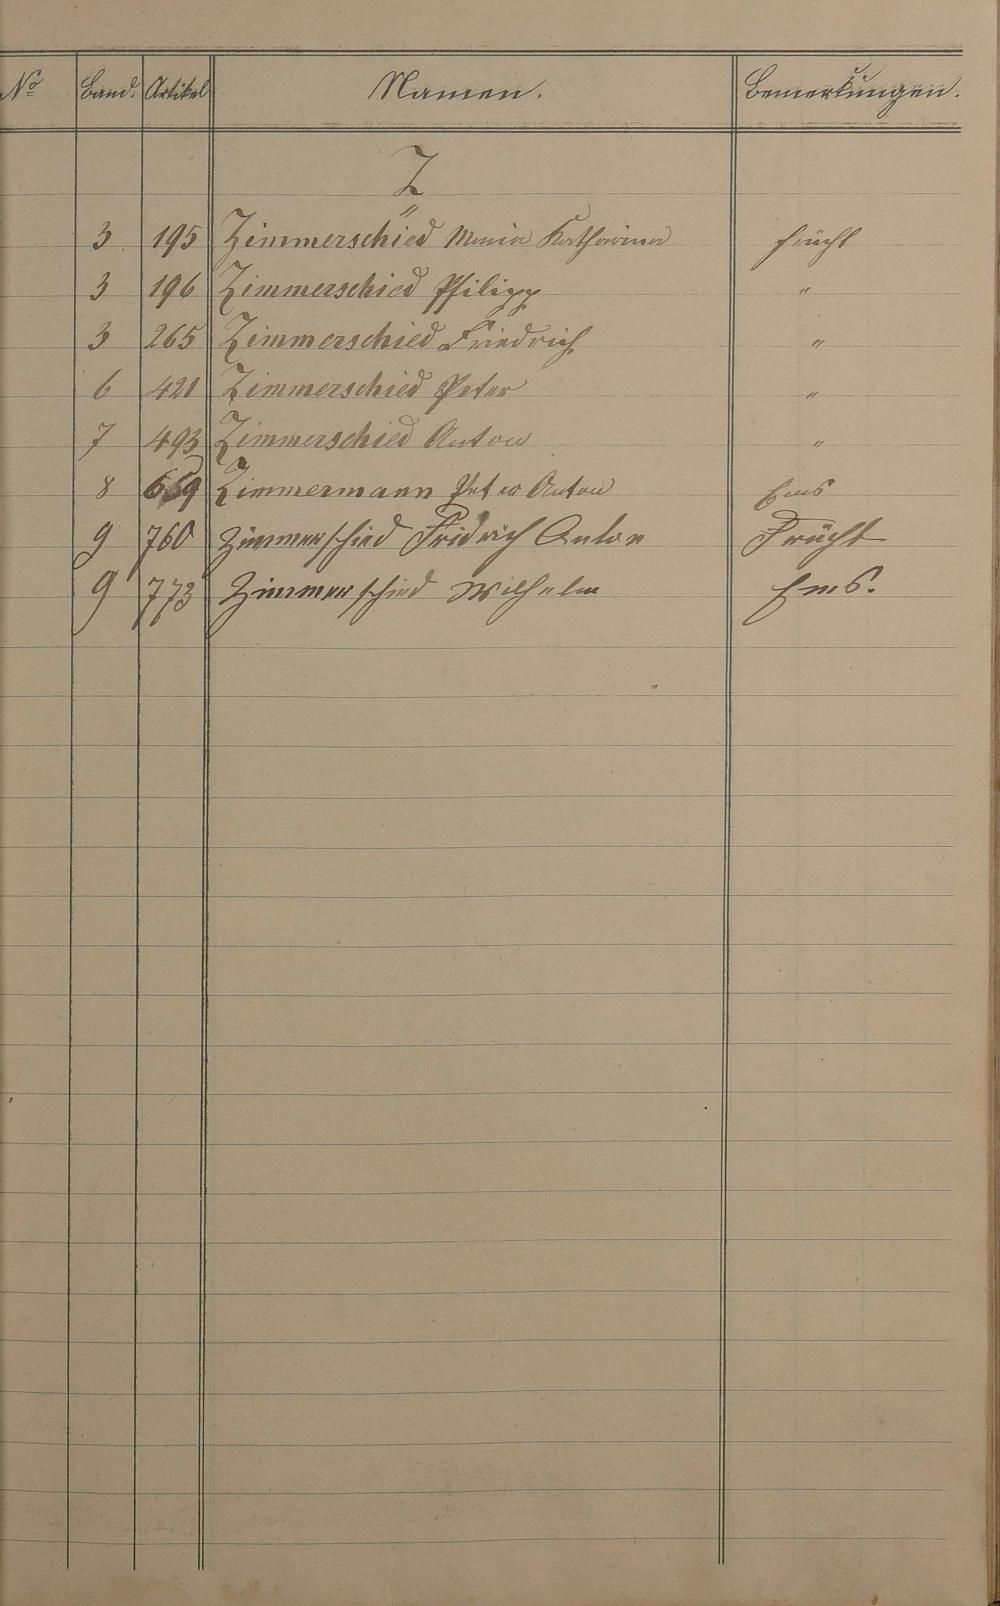 No Band. Artikel Namen. Bemerkungen.
Z
3 195 Zimmerschied Maria Katharina Frücht
3 196 Zimmerschied Philipp "
3 265 Zimmerschied Friedrich "
6 421 Zimmerschied Peter "
7 493 Zimmerschied Anton "
8 669 Zimmermann Anton Ems
9 760 Zimmerschied Fridrich Anton Frücht
9 773 Zimmerschied Wilhelm Ems.